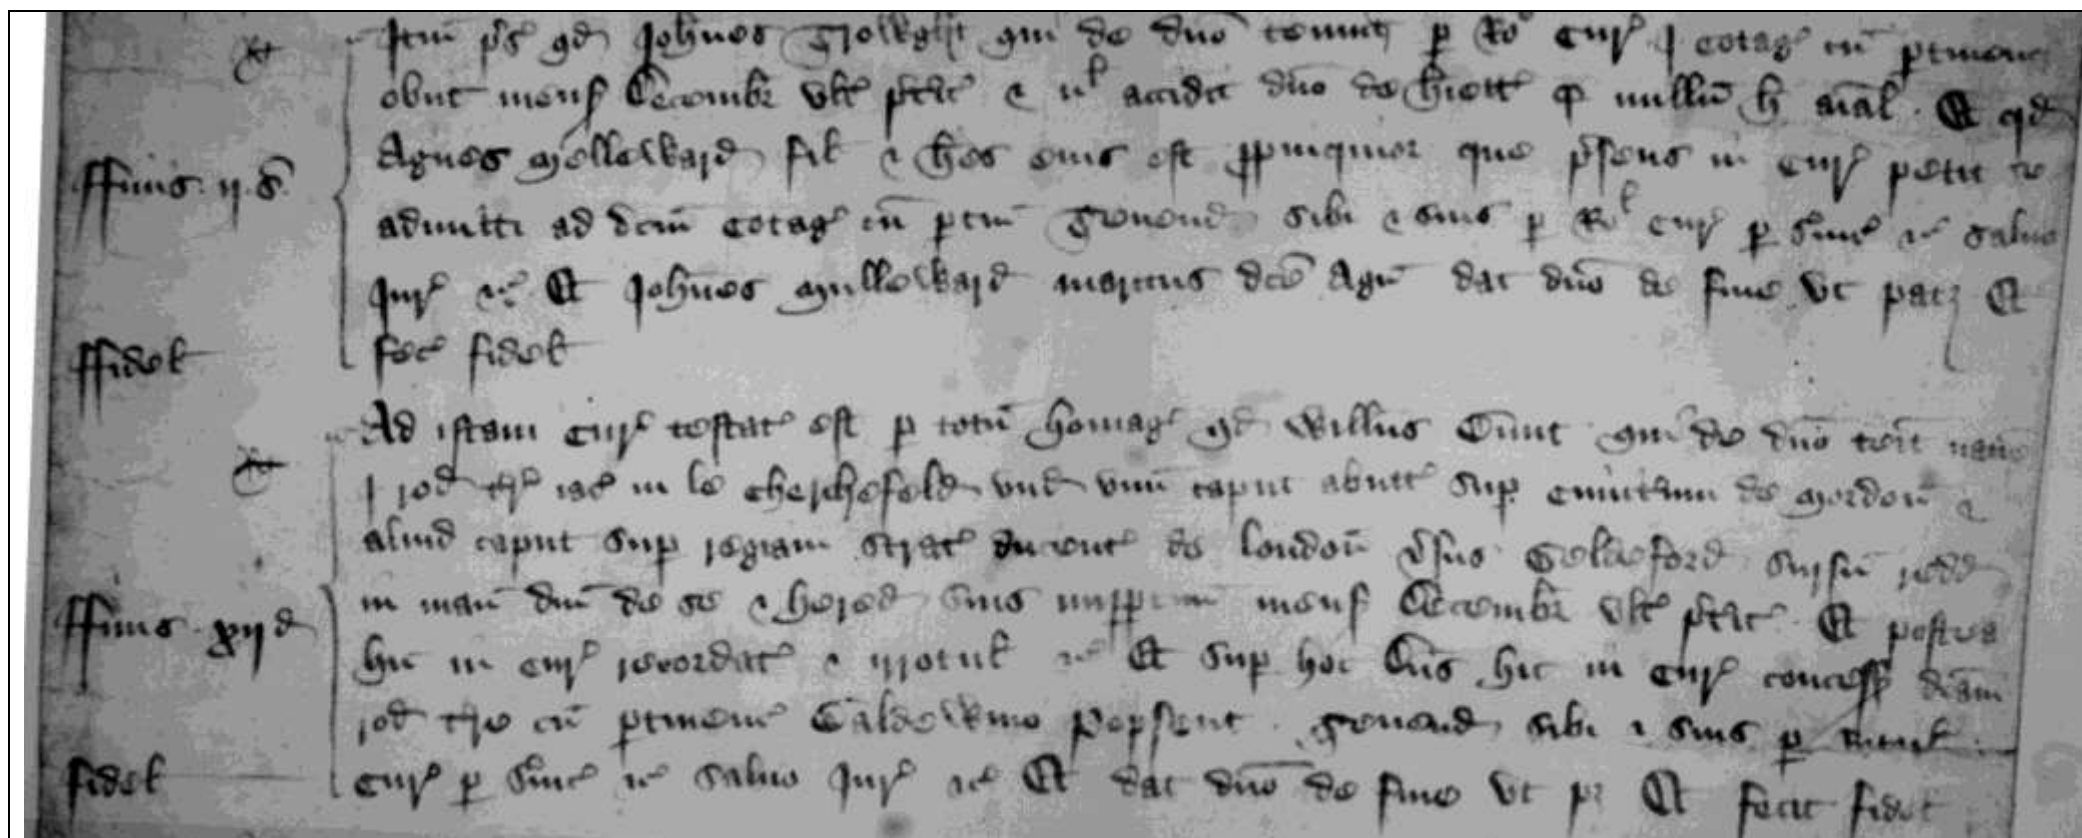 Itm p's qd Johnes qui de dno tenuit p Ro cur' j cotag' cu ptinenc
obijt mens' Decembr' ult' p'terit' & nl accidit dno de hiett' q nullu h aial . Et qd
ffinis . ij . s'. Agnes Melleward fil & hes eius est p'pinquior que p'sens in cur' petit se
admitti ad dcm cotag' cu ptin' Tenend sibi & suis p Rol cur' p s'uic' &c' saluo
Jur' &c' Et Johnes Mylleward maritus dce Agn' dat dno de fine ut pat; Et
ffidel fec' fidel
Ad istam cur' testat' est p totu homag' qd Willus qui de dno
j rod t're iac' in le Cherchefeld unde unu caput abutt' sup' cimit'ium de Mordon' &
aliud caput sup regiam strat' ducent' de london' v'sus Geldeford sursu redd
in man' dni de se & hered suis nup mens' Decembr' ult' p'terit' . Et postea
ffinis . xij d hic in cur' recordat' & irrotul' &c' Et sup hoc Dns hic in cur' concess' dcam
rod t're cu ptinenc' Baldewino Popsent . Tenend sibi & suis p rotul
fidel cur' p s'uic' &c' saluo Jur' &c' Et dat dno de fine ut p; Et fecit fidel